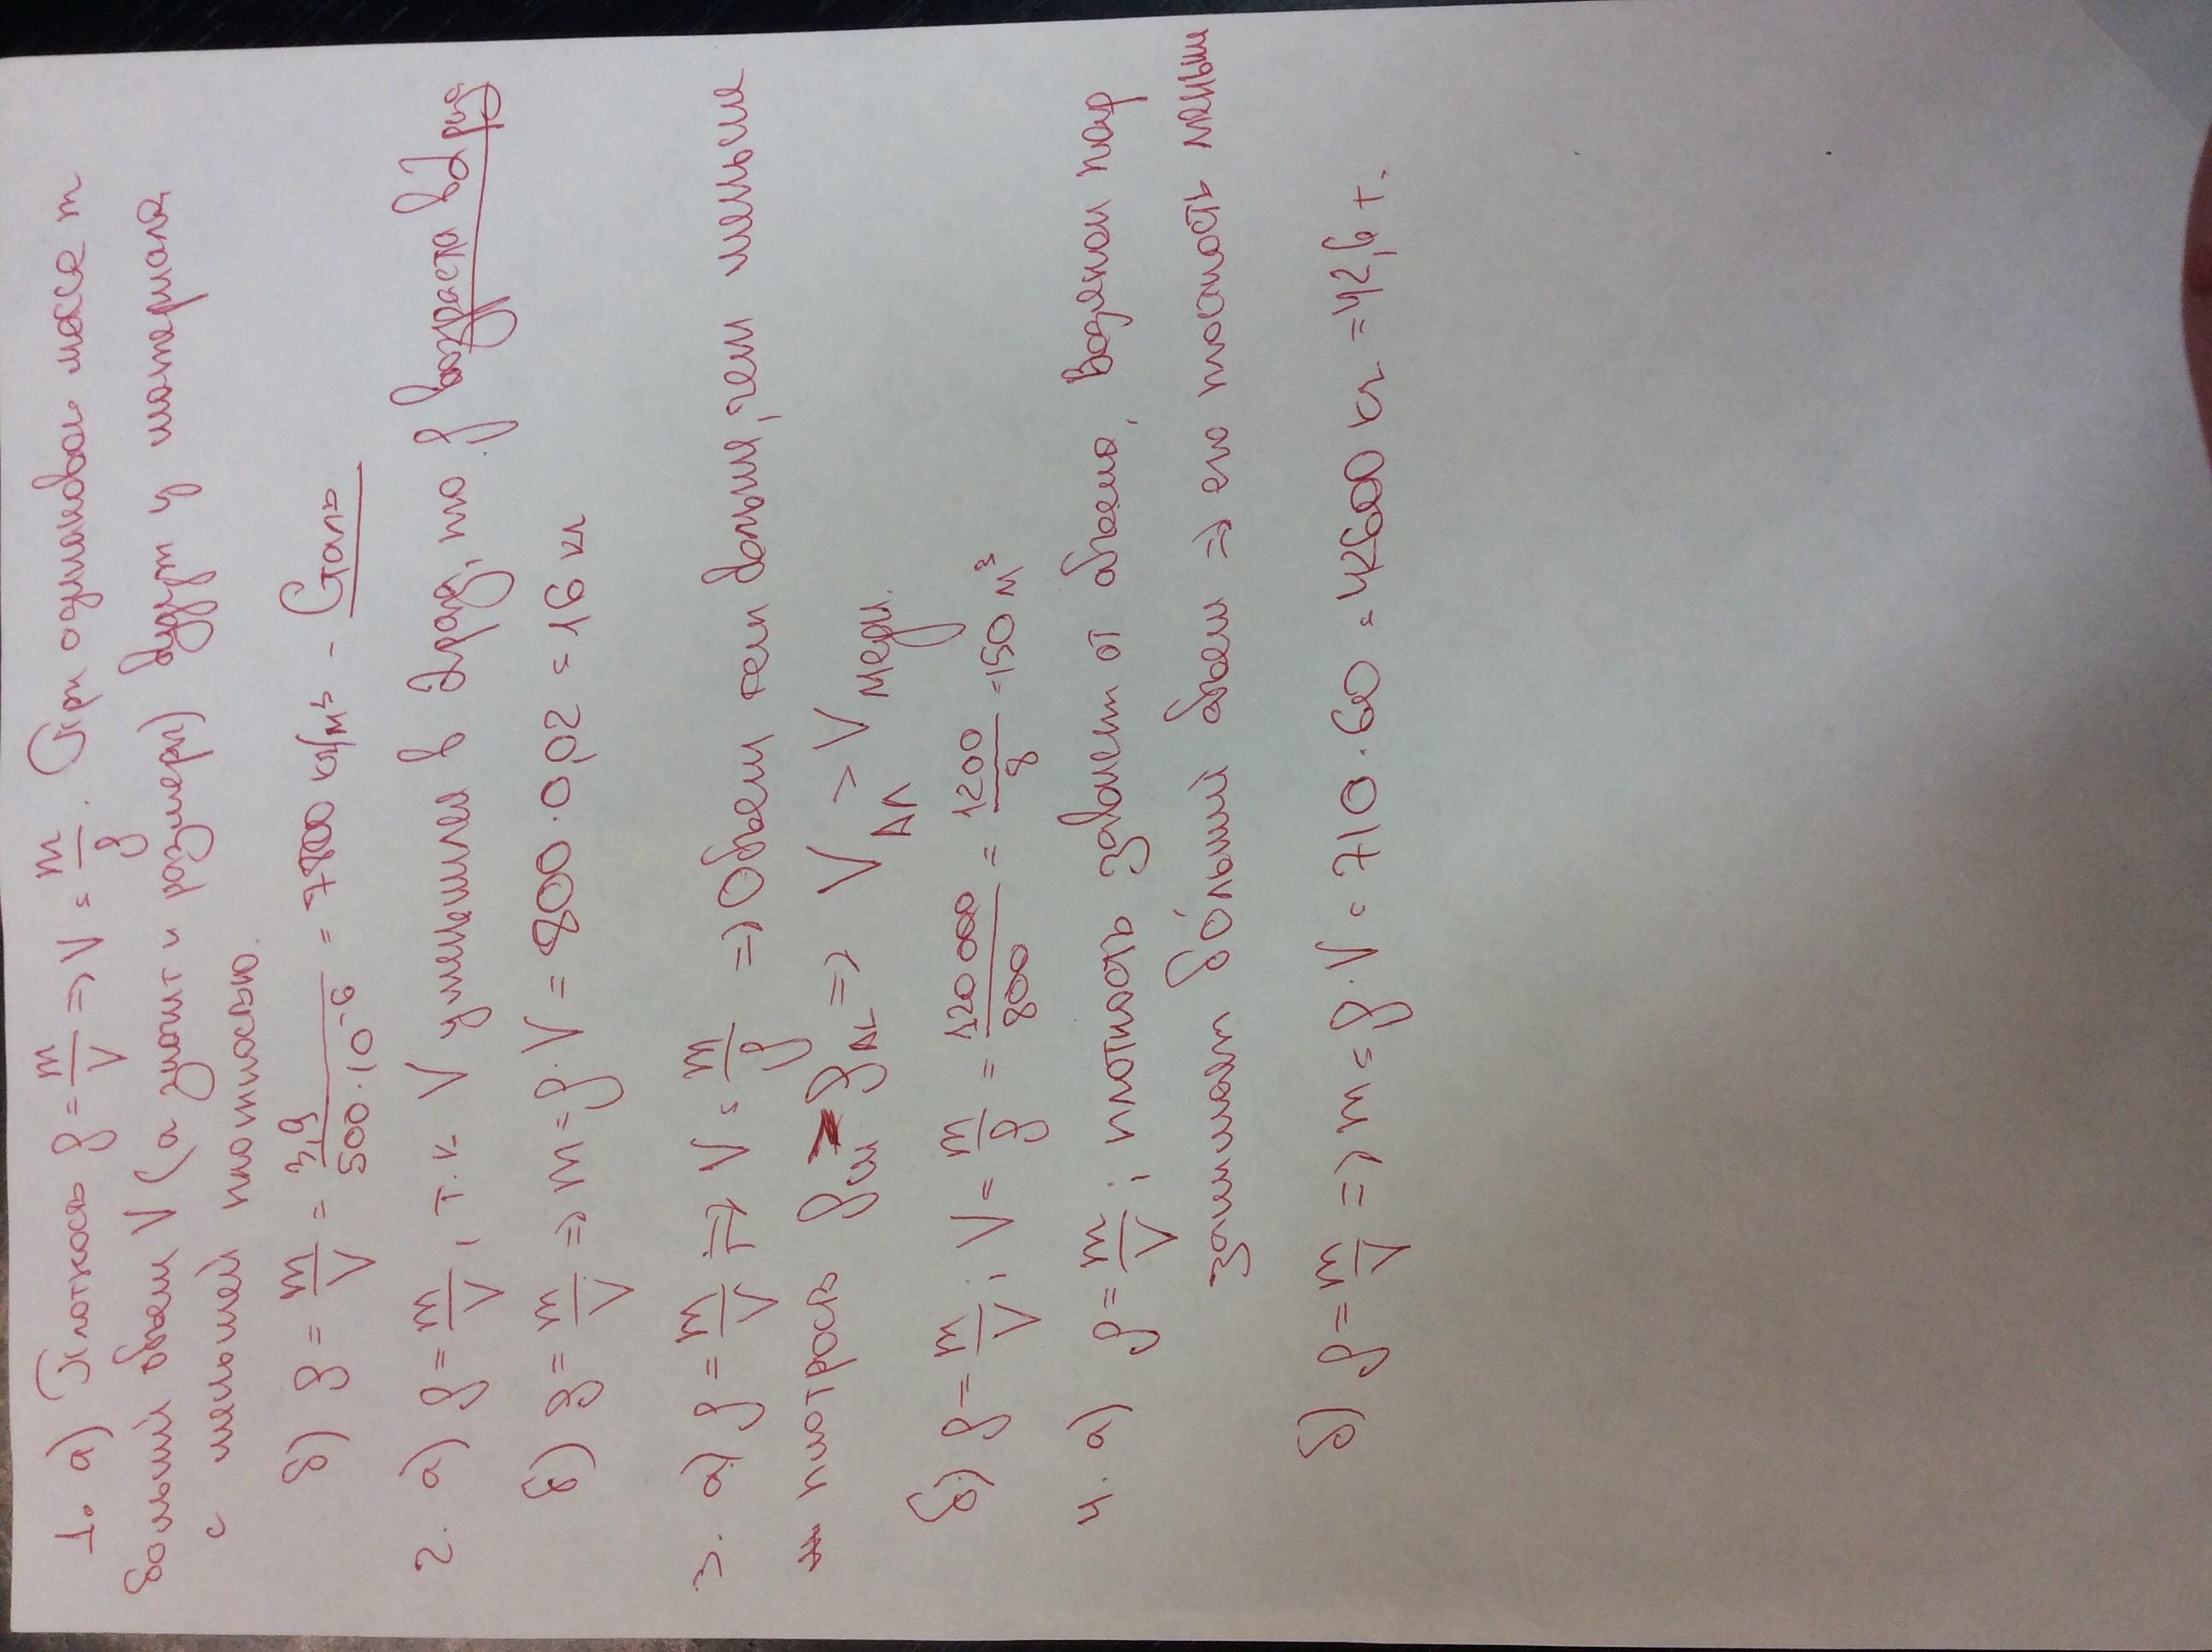 1. а) Плотность ρ = m/V => V = m/ρ. При одинаковой массе m
больший объем V (а значит и размеры) будут у материала
с меньшей плотностью.
б) ρ = m/V = 3,9/500·10⁻⁶ = 7800 кг/м³ - Сталь
2. а) ρ = m/V, т.к V уменьшился в 2 раз, то ρ возрасла в 2 раз
б) ρ = m/V => m = ρ·V = 800·0,02 = 16 кг
3. а) ρ = m/V => V = m/ρ => Объем тем больше, чем меньше
плотрость ρм > ρAL => VАл > Vмеди.
б) ρ = m/V; V = m/ρ = 120 000/800 = 1200/8 = 150 м³
4. а) ρ = m/V; плотность зависит от объема, водяной пар
занимает бо́льший объем => его плотность меньше
б) ρ = m/V => m = ρ·V = 710·60 = 42600 кг = 42,6 т.